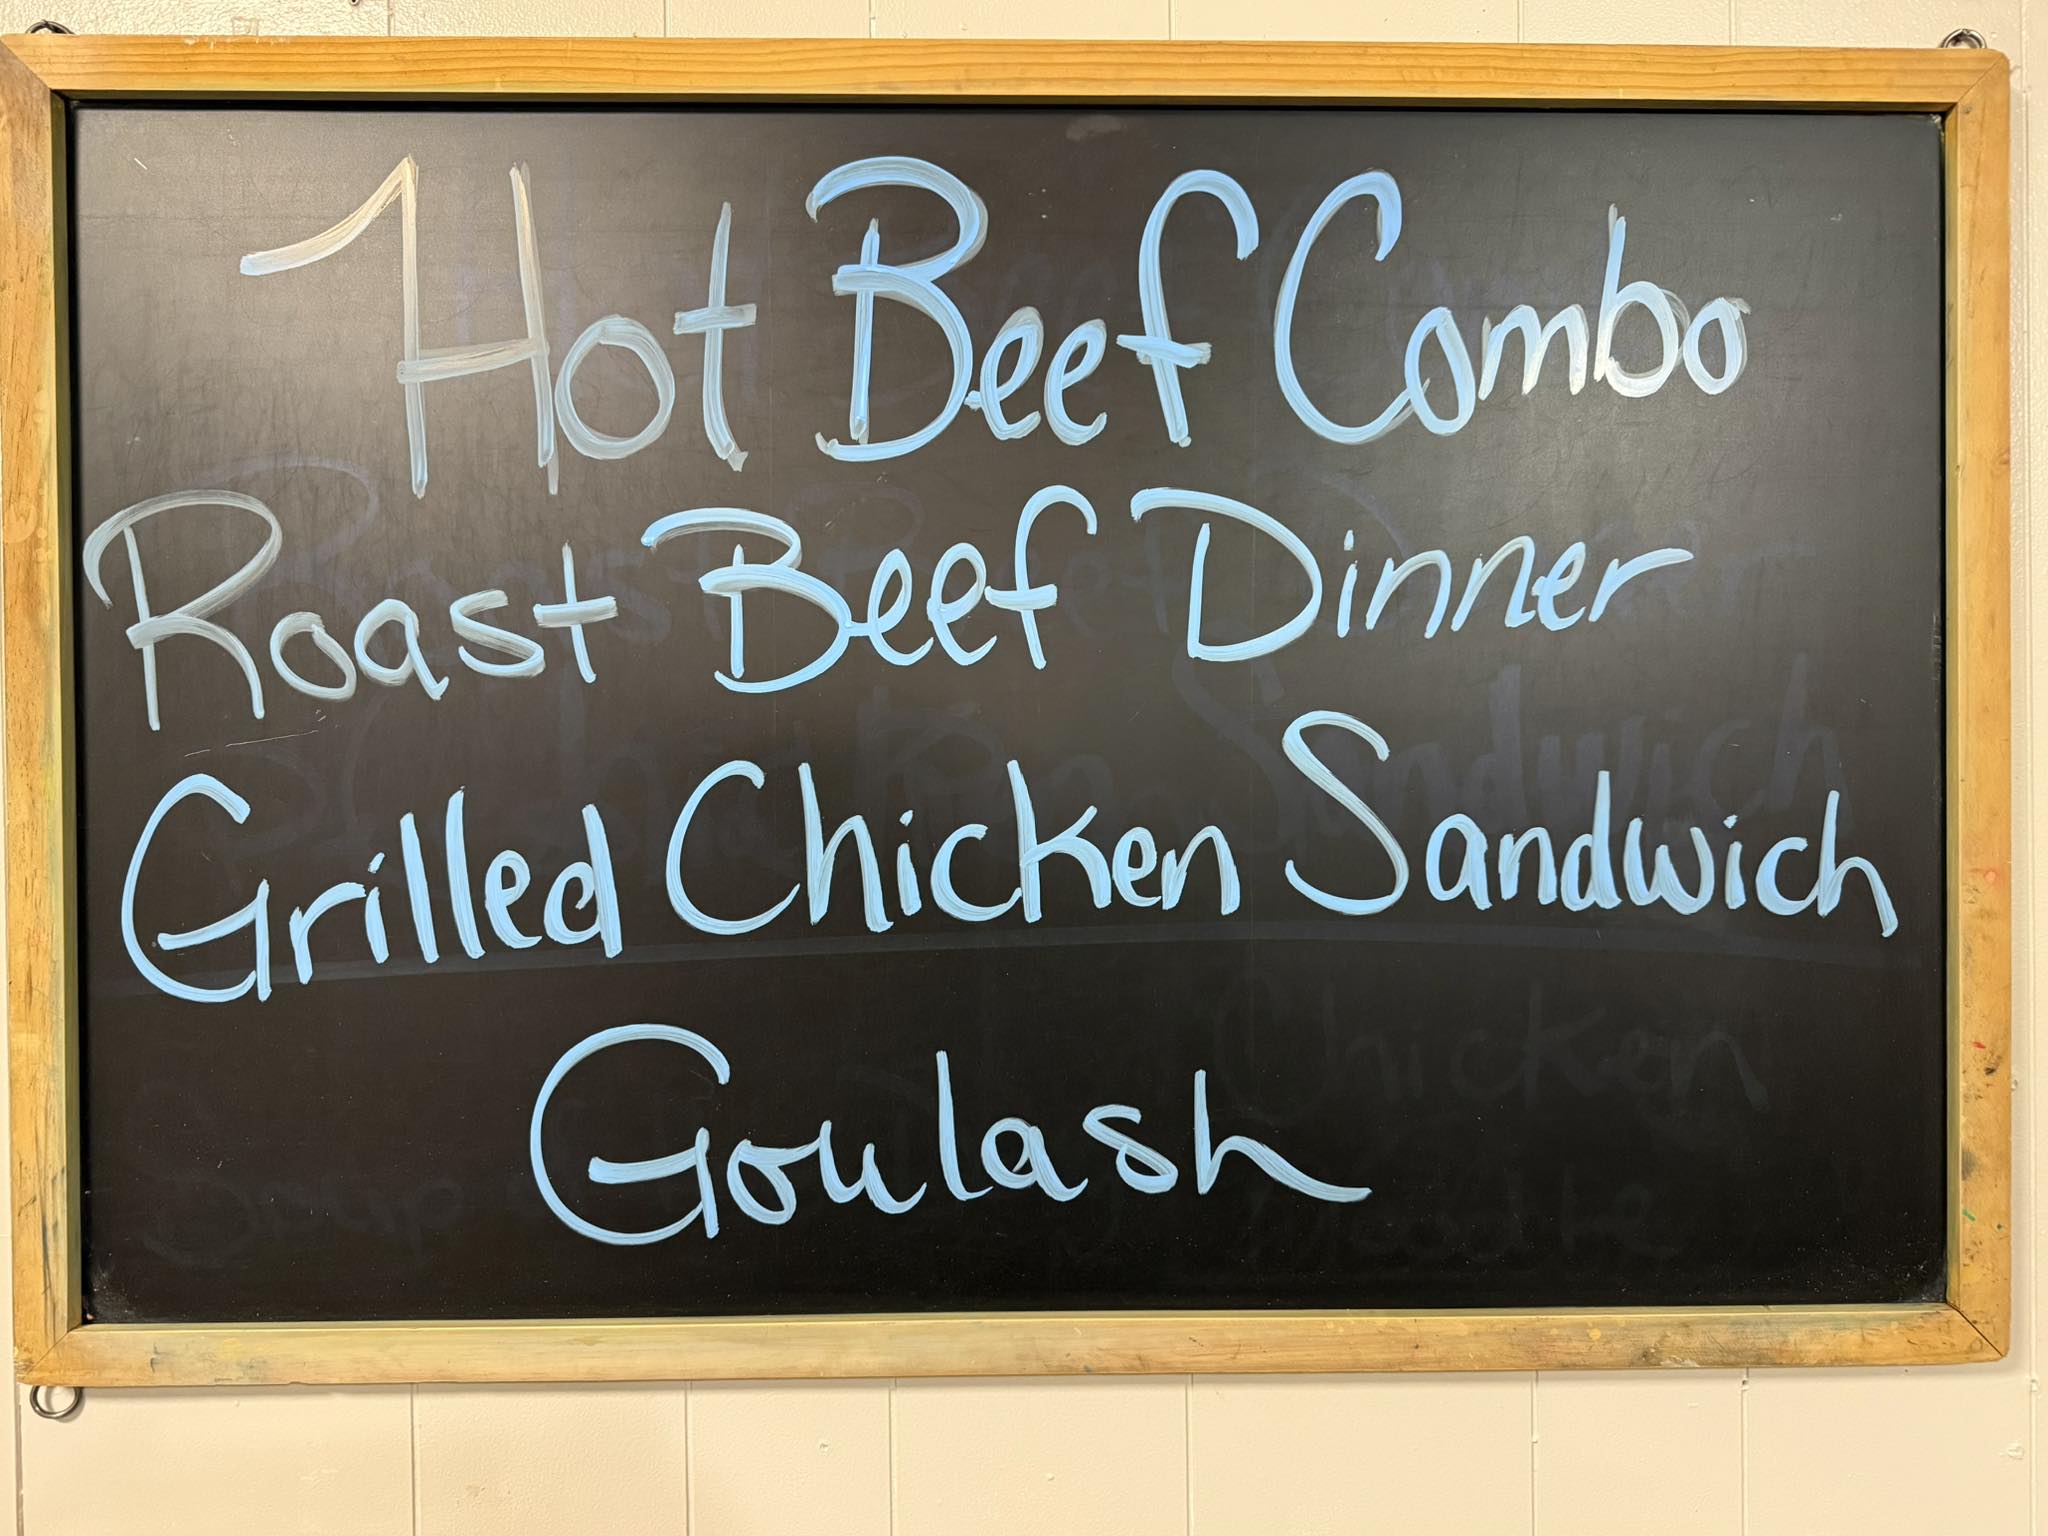 Hot Beef Combo
Roast Beef Dinner
Grilled Chicken Sandwich
Goulash